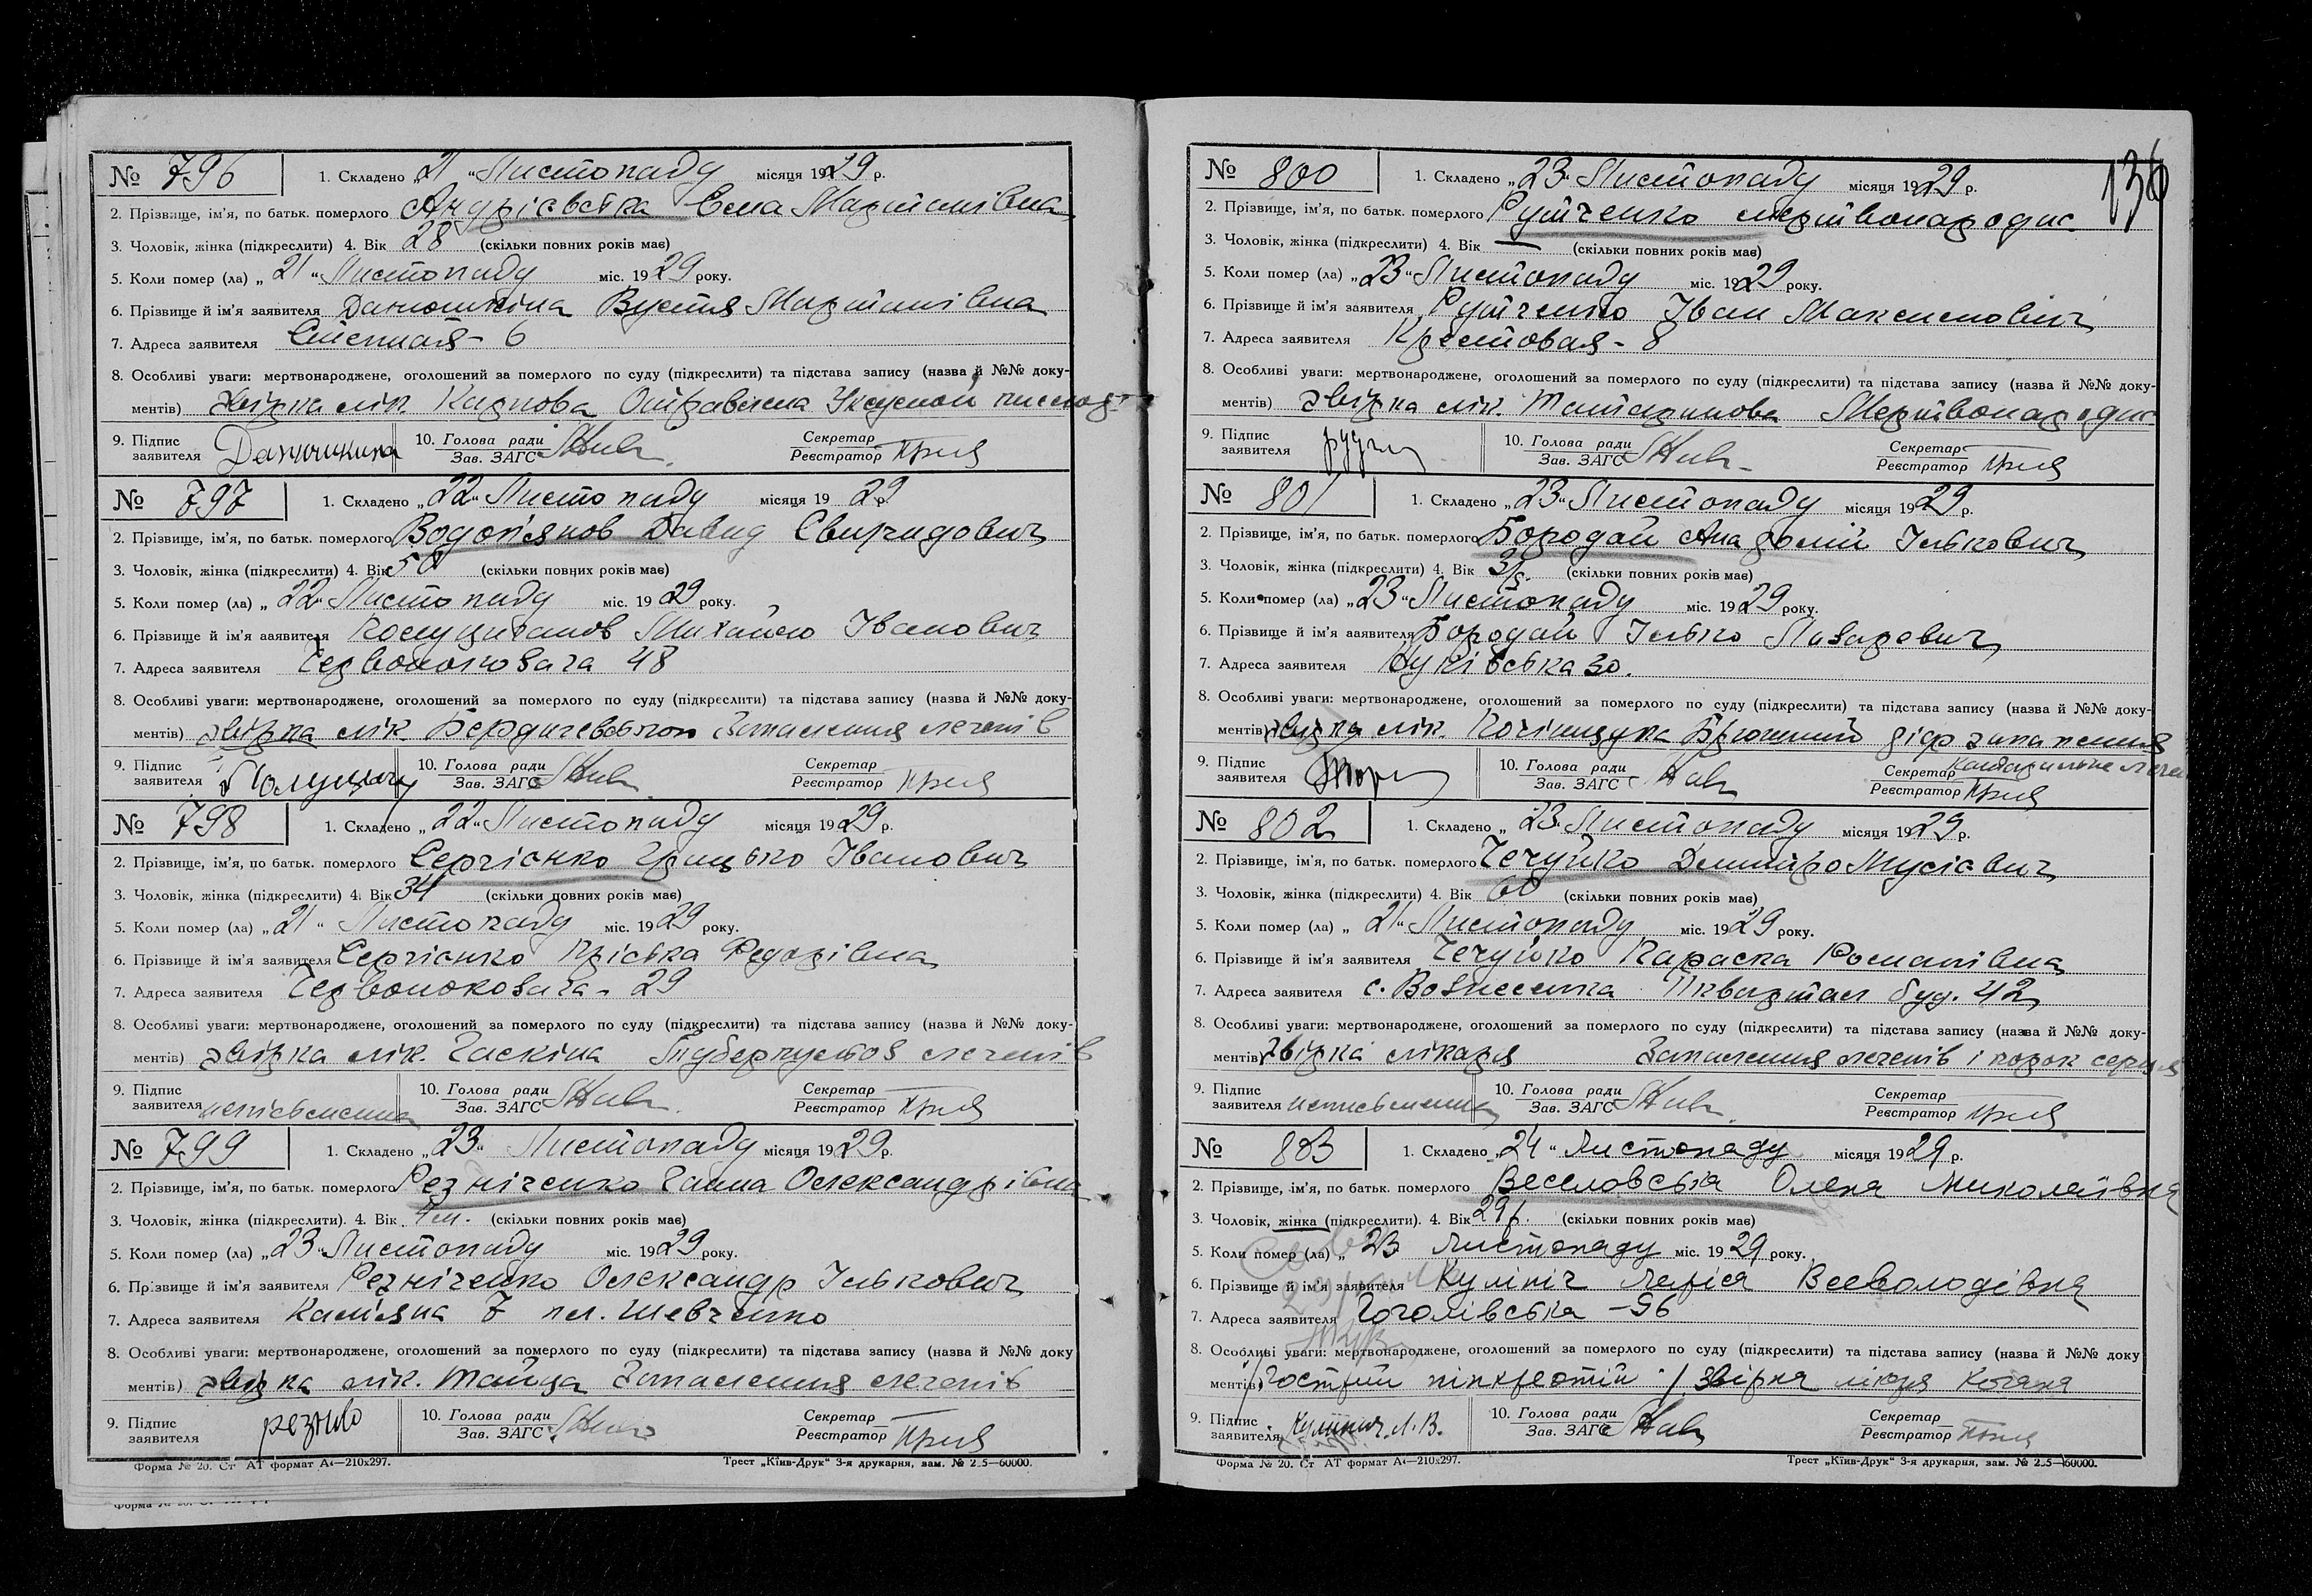 № 796 1. Складено „21“ Листопаду місяця 1929 р.
2. Прізвище, ім'я, по батьк. померлого Андрієвська Єлена Мартинівна
3. Чоловік, жінка (підкреслити) 4. Вік 28 (скільки повних років має)
5. Коли помер (ла) „21“ Листопаду міс. 1929 року.
6. Прізвище й ім'я заявителя Данюшкіна Вустя Мартинівна
7. Адреса заявителя Степная - 6
8. Особливі уваги: мертвонароджене, оголошений за померлого по суду (підкреслити) та підстава запису (назва й №№ доку-
ментів) звірка лік. Карпова Отравлена Уксусной
9. Підпис заявителя Данюшкина 10. Голова ради Зав. ЗАГС Секретар Реєстратор
№ 797 1. Складено „22“ Листопаду місяця 1929 р.
2. Прізвище, ім'я, по батьк. померлого Водоп'янов Давид Свиридович
3. Чоловік, жінка (підкреслити) 4. Вік 50 (скільки повних років має)
5. Коли помер (ла) „22“ Листопаду міс. 1929 року.
6. Прізвище й ім'я заявителя Михайло Іванович
7. Адреса заявителя Червонокозача 48
8. Особливі уваги: мертвонароджене, оголошений за померлого по суду (підкреслити) та підстава запису (назва й №№ доку-
ментів) звірка лік. Запалення легенів
9. Підпис заявителя 10. Голова ради Зав. ЗАГС Секретар Реєстратор
№ 798 1. Складено „22“ Листопаду місяця 1929 р.
2. Прізвище, ім'я, по батьк. померлого Сергієнко Грицько Іванович
3. Чоловік, жінка (підкреслити) 4. Вік 34 (скільки повних років має)
5. Коли помер (ла) „21“ Листопаду міс. 1929 року.
6. Прізвище й ім'я заявителя Сергієнко Пріська Федорівна
7. Адреса заявителя Червонокозача - 29
8. Особливі уваги: мертвонароджене, оголошений за померлого по суду (підкреслити) та підстава запису (назва й №№ доку-
ментів) звірка лік. Гаскіна легенів
9. Підпис заявителя неписьменна 10. Голова ради Зав. ЗАГС Секретар Реєстратор
№ 799 1. Складено „23“ Листопаду місяця 1929 р.
2. Прізвище, ім'я, по батьк. померлого Резніченко Ганна Олександрівна
3. Чоловік, жінка (підкреслити). 4. Вік (скільки повних років має)
5. Коли помер (ла) „23“ Листопаду міс. 1929 року.
6. Прізвище й ім'я заявителя Резніченко Олександр Ількович
7. Адреса заявителя Кам'яна 7 пл. Шевченко
8. Особливі уваги: мертвонароджене, оголошений за померлого по суду (підкреслити) та підстава запису (назва й №№ доку
ментів) звірка лік. Тайца Запалення легенів
9. Підпис заявителя 10. Голова ради Зав. ЗАГС Секретар Реєстратор
Форма № 20. Ст АТ формат А4—210х297. Трест „Київ-Друк“ 3-я друкарня, зам. № 225—60000.
136
№ 800 1. Складено „23“ Листопаду місяця 1929 р.
2. Прізвище, ім'я, по батьк. померлого Рутченко мертвонародж.
3. Чоловік, жінка (підкреслити) 4. Вік — (скільки повних років має)
5. Коли помер (ла) „23“ Листопаду міс. 1929 року.
6. Прізвище й ім'я заявителя Рутченко Іван Максимович
7. Адреса заявителя Крестовая - 8
8. Особливі уваги: мертвонароджене, оголошений за померлого по суду (підкреслити) та підстава запису (назва й №№ доку-
ментів) звірка лік. Татаринова Мертвонародж
9. Підпис заявителя 10. Голова ради Зав. ЗАГС Секретар Реєстратор
№ 801 1. Складено „23“ Листопаду місяця 1929 р.
2. Прізвище, ім'я, по батьк. померлого Бородай Анатолій Ількович
3. Чоловік, жінка (підкреслити) 4. Вік (скільки повних років має)
5. Коли помер (ла) „23“ Листопаду міс. 1929 року.
6. Прізвище й ім'я заявителя Бородай Ілько Лазаревич
7. Адреса заявителя 30.
8. Особливі уваги: мертвонароджене, оголошений за померлого по суду (підкреслити) та підстава запису (назва й №№ доку-
ментів) звірка лік. запалення
9. Підпис заявителя 10. Голова ради Зав. ЗАГС Секретар Реєстратор
№ 802 1. Складено „23“ Листопаду місяця 1929 р.
2. Прізвище, ім'я, по батьк. померлого Чечуйко Дмитро Мусієвич
3. Чоловік, жінка (підкреслити) 4. Вік 60 (скільки повних років має)
5. Коли помер (ла) „21“ Листопаду міс. 1929 року.
6. Прізвище й ім'я заявителя Чечуйко Параска Романівна
7. Адреса заявителя с. Вознесенка буд. 42
8. Особливі уваги: мертвонароджене, оголошений за померлого по суду (підкреслити) та підстава запису (назва й №№ доку-
ментів) Звірка лікаря Запалення легенів і порок серця
9. Підпис заявителя неписьменна 10. Голова ради Зав. ЗАГС Секретар Реєстратор
№ 803 1. Складено „24“ Листопаду місяця 1929 р.
2. Прізвище, ім'я, по батьк. померлого Веселовська Олена Миколаївна
3. Чоловік, жінка (підкреслити). 4. Вік 29 р. (скільки повних років має)
5. Коли помер (ла) „23 Листопаду міс. 1929 року.
6. Прізвище й ім'я заявителя Кулініч Лариса Всеволодівна
7. Адреса заявителя Гоголівська - 96
8. Особливі уваги: мертвонароджене, оголошений за померлого по суду (підкреслити) та підстава запису (назва й №№ доку
ментів) Гострий Звірка лікаря
9. Підпис заявителя Кулинич Л. В. 10. Голова ради Зав. ЗАГС Секретар Реєстратор
Форма № 20. Ст АТ формат А4—210х297. Трест „Київ-Друк“ 3-я друкарня, зам. № 225—60000.